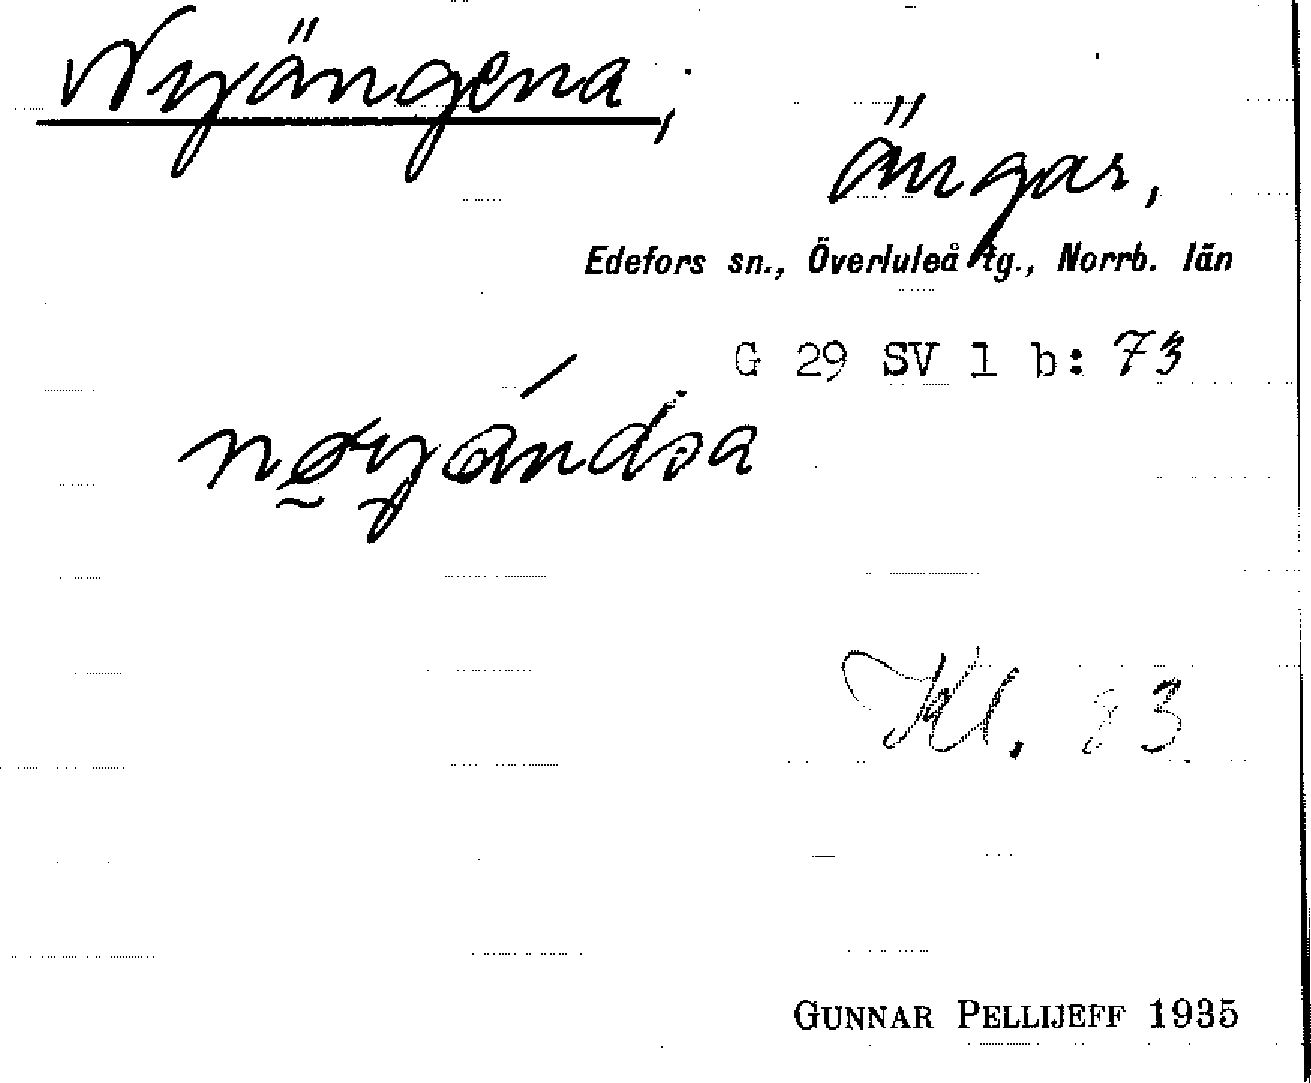 Nyängena,
ängar,
Edefors sn., Överluleå tg., Norrb. län
G 29 SV 1 b: 73
Kl. 83
GUNNAR PELLIJEFF 1935